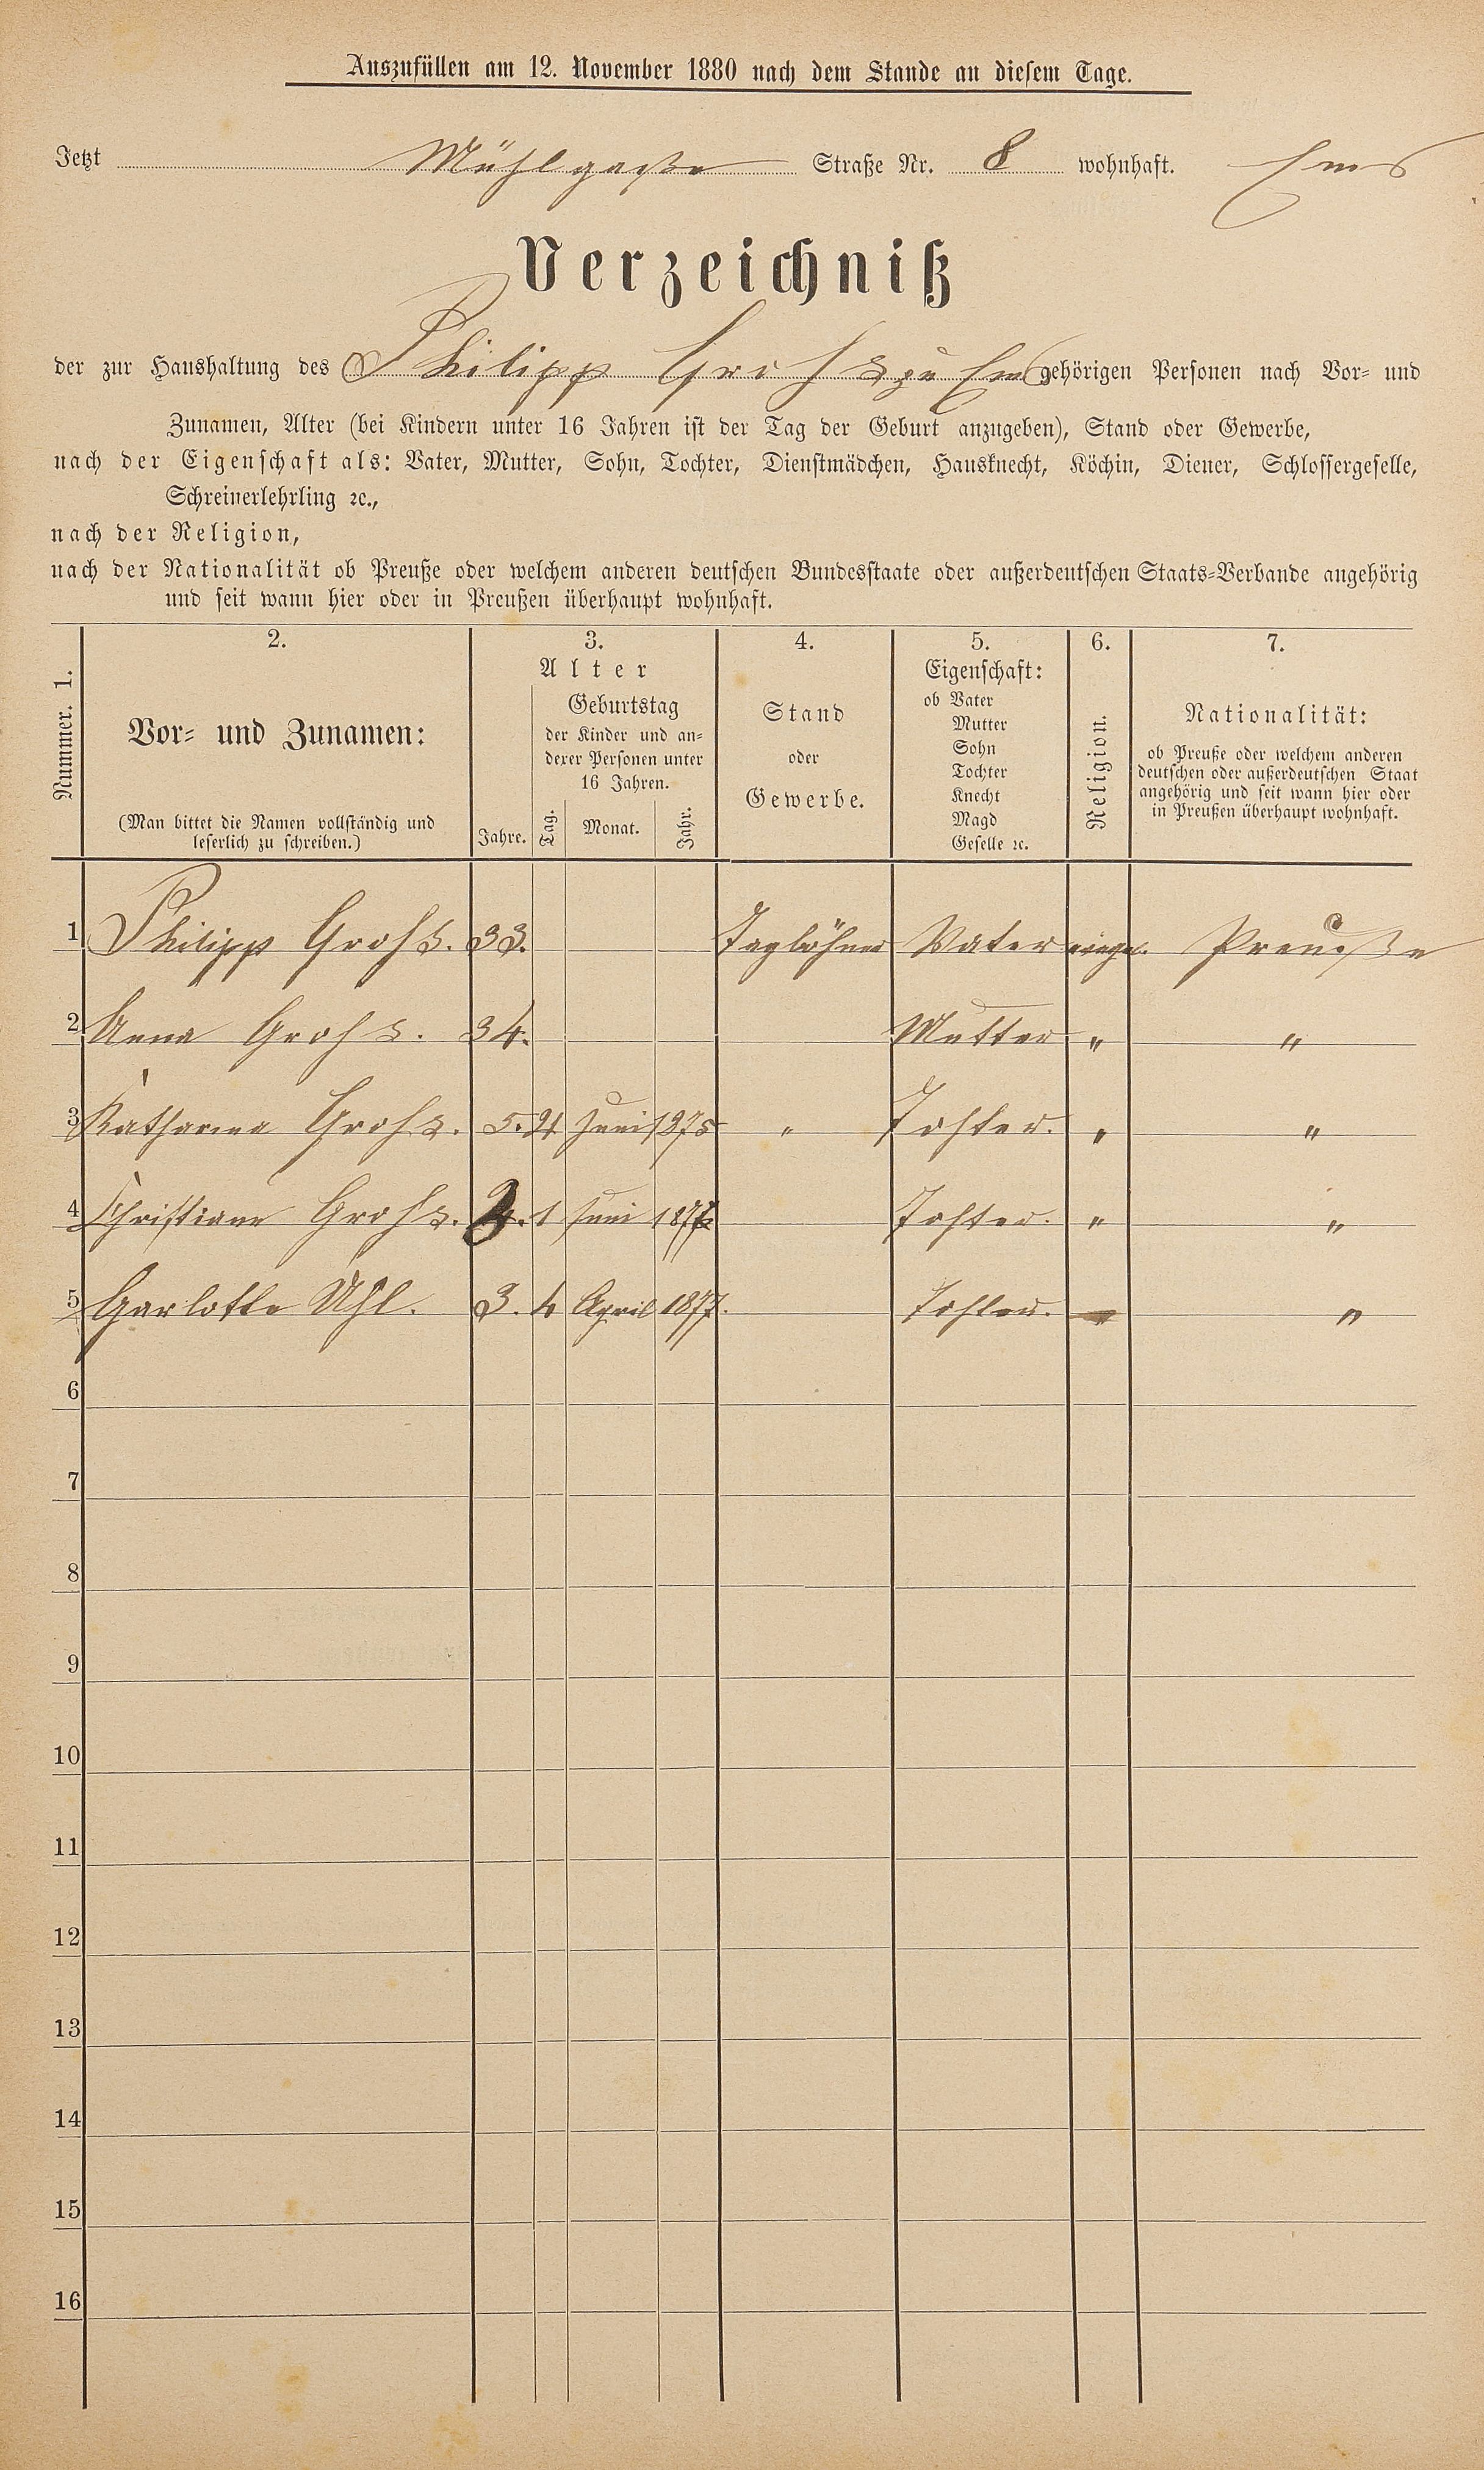 Auszufüllen am 12. November 1880 nach dem Stande an diesem Tage.
Jetzt Mühlgaße Straße Nr. 8 wohnhaft. Ems
Verzeichniß
der zur Haushaltung des Philipp Grohs zu Ems gehörigen Personen nach Vor- und
Zunamen, Alter (bei Kindern unter 16 Jahren ist der Tag der Geburt anzugeben), Stand oder Gewerbe,
nach der Eigenschaft als: Vater, Mutter, Sohn, Tochter, Dienstmädchen, Hausknecht, Köchin, Diener, Schlossergeselle,
Schreinerlehrling ꝛc.,
nach der Religion,
nach der Nationalität ob Preuße oder welchem anderen deutschen Bundesstaate oder außerdeutschen Staats-Verbande angehörig
und seit wann hier oder in Preußen überhaupt wohnhaft.
Nummer. 1.
2.
Vor- und Zunamen:
(Man bittet die Namen vollständig und
leserlich zu schreiben.)
3.
Alter
Jahre.
Geburtstag
der Kinder und an-
derer Personen unter
16 Jahren.
Tag. Monat. Jahr.
4.
Stand
oder
Gewerbe.
5.
Eigenschaft:
ob Vater
Mutter
Sohn
Tochter
Knecht
Magd
Geselle ꝛc.
6.
Religion.
7.
Nationalität:
ob Preuße oder welchem anderen
deutschen oder außerdeutschen Staat
angehörig und seit wann hier oder
in Preußen überhaupt wohnhaft.
1 Philipp Grohs. 33. Taglöhner Vater evangel. Preuße
2 Anna Grohs. 34. Mutter " "
3 Katharina Grohs. 5. Juni 1875 " Tochter. " "
4 Christiane Grohs. 1 Juni Tochter. " "
5 Garlotte Uhl. 3. 4 April 1877. Tochter. " "
6
7
8
9
10
11
12
13
14
15
16